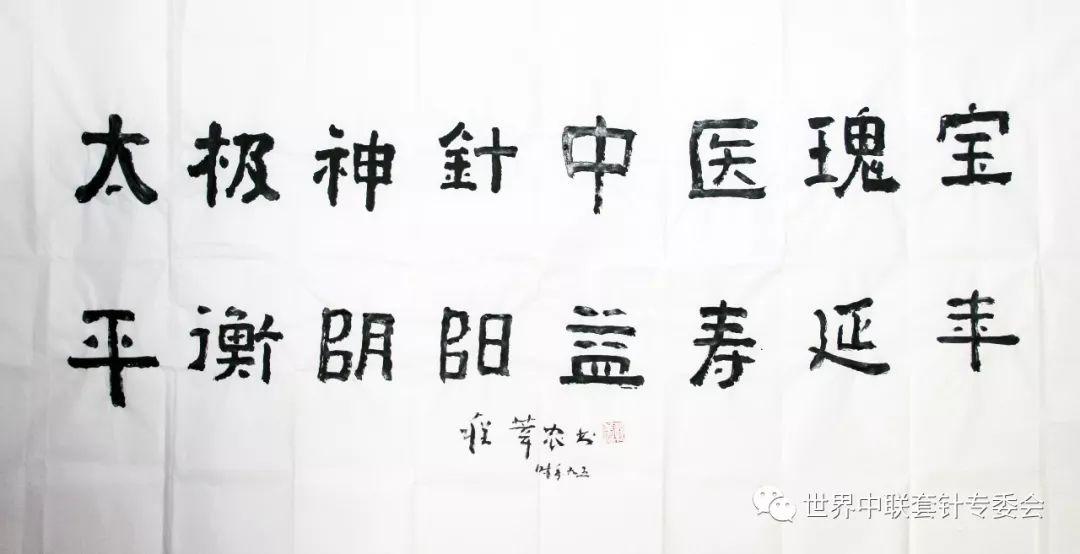 太极神針中医瑰宝
平衡阴阳益寿延年
程莘农书
时年九五
世界中联套针专委会